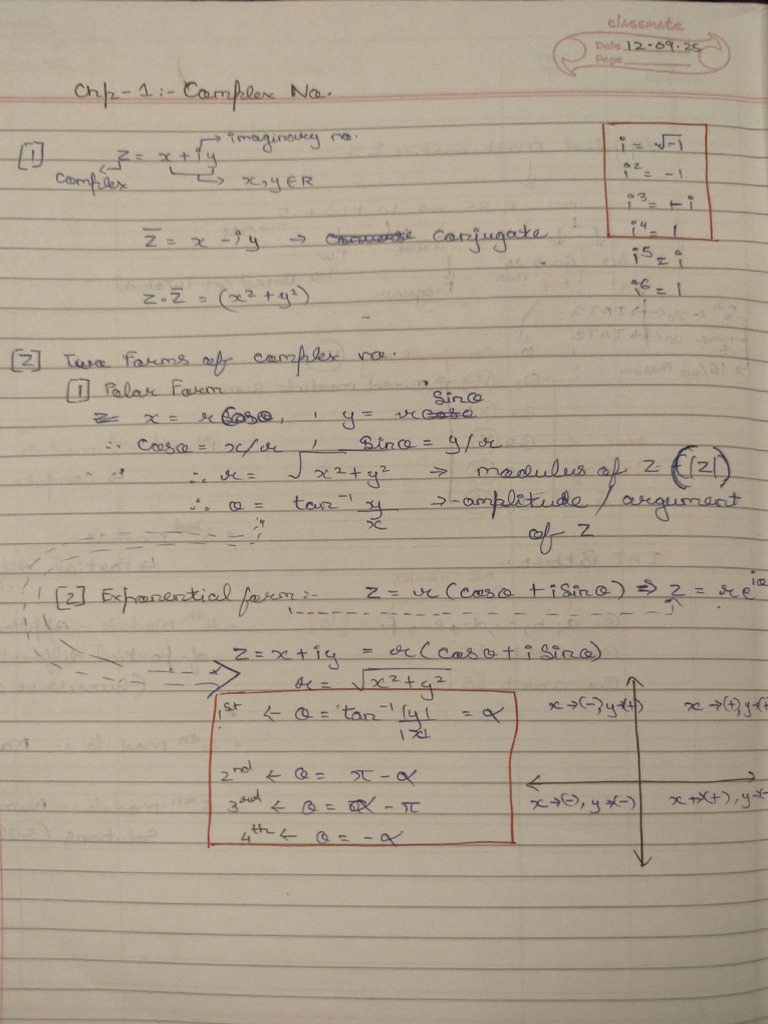 classmate
Date 12.09.25
Page
Chp-1:- Complex No.
[1] z = x + iy → imaginary no.
Complex → x, y ∈ R
z̄ = x - iy → conjugate
z · z̄ = (x² + y²)
i = √-1
i² = -1
i³ = -i
i⁴ = 1
i⁵ = i
i⁶ = 1
[2] Two Forms of complex no.
[1] Polar Form
x = r cosθ, y = r sinθ
∴ cosθ = x/r , sinθ = y/r
∴ r = √x² + y² → modulus of z (|z|)
∴ θ = tan⁻¹ y/x → amplitude / argument
of z
[2] Exponential form:- z = r (cosθ + i sinθ) ⇒ z = r e^iθ
z = x + iy = r (cosθ + i sinθ)
r = √x² + y²
1st ← θ = tan⁻¹ |y|/|x| = α
2nd ← θ = π - α
3rd ← θ = α - π
4th ← θ = -α
x→(-), y→(+) x→(+), y→(+
x→(-), y→(-) x→(+), y→(-